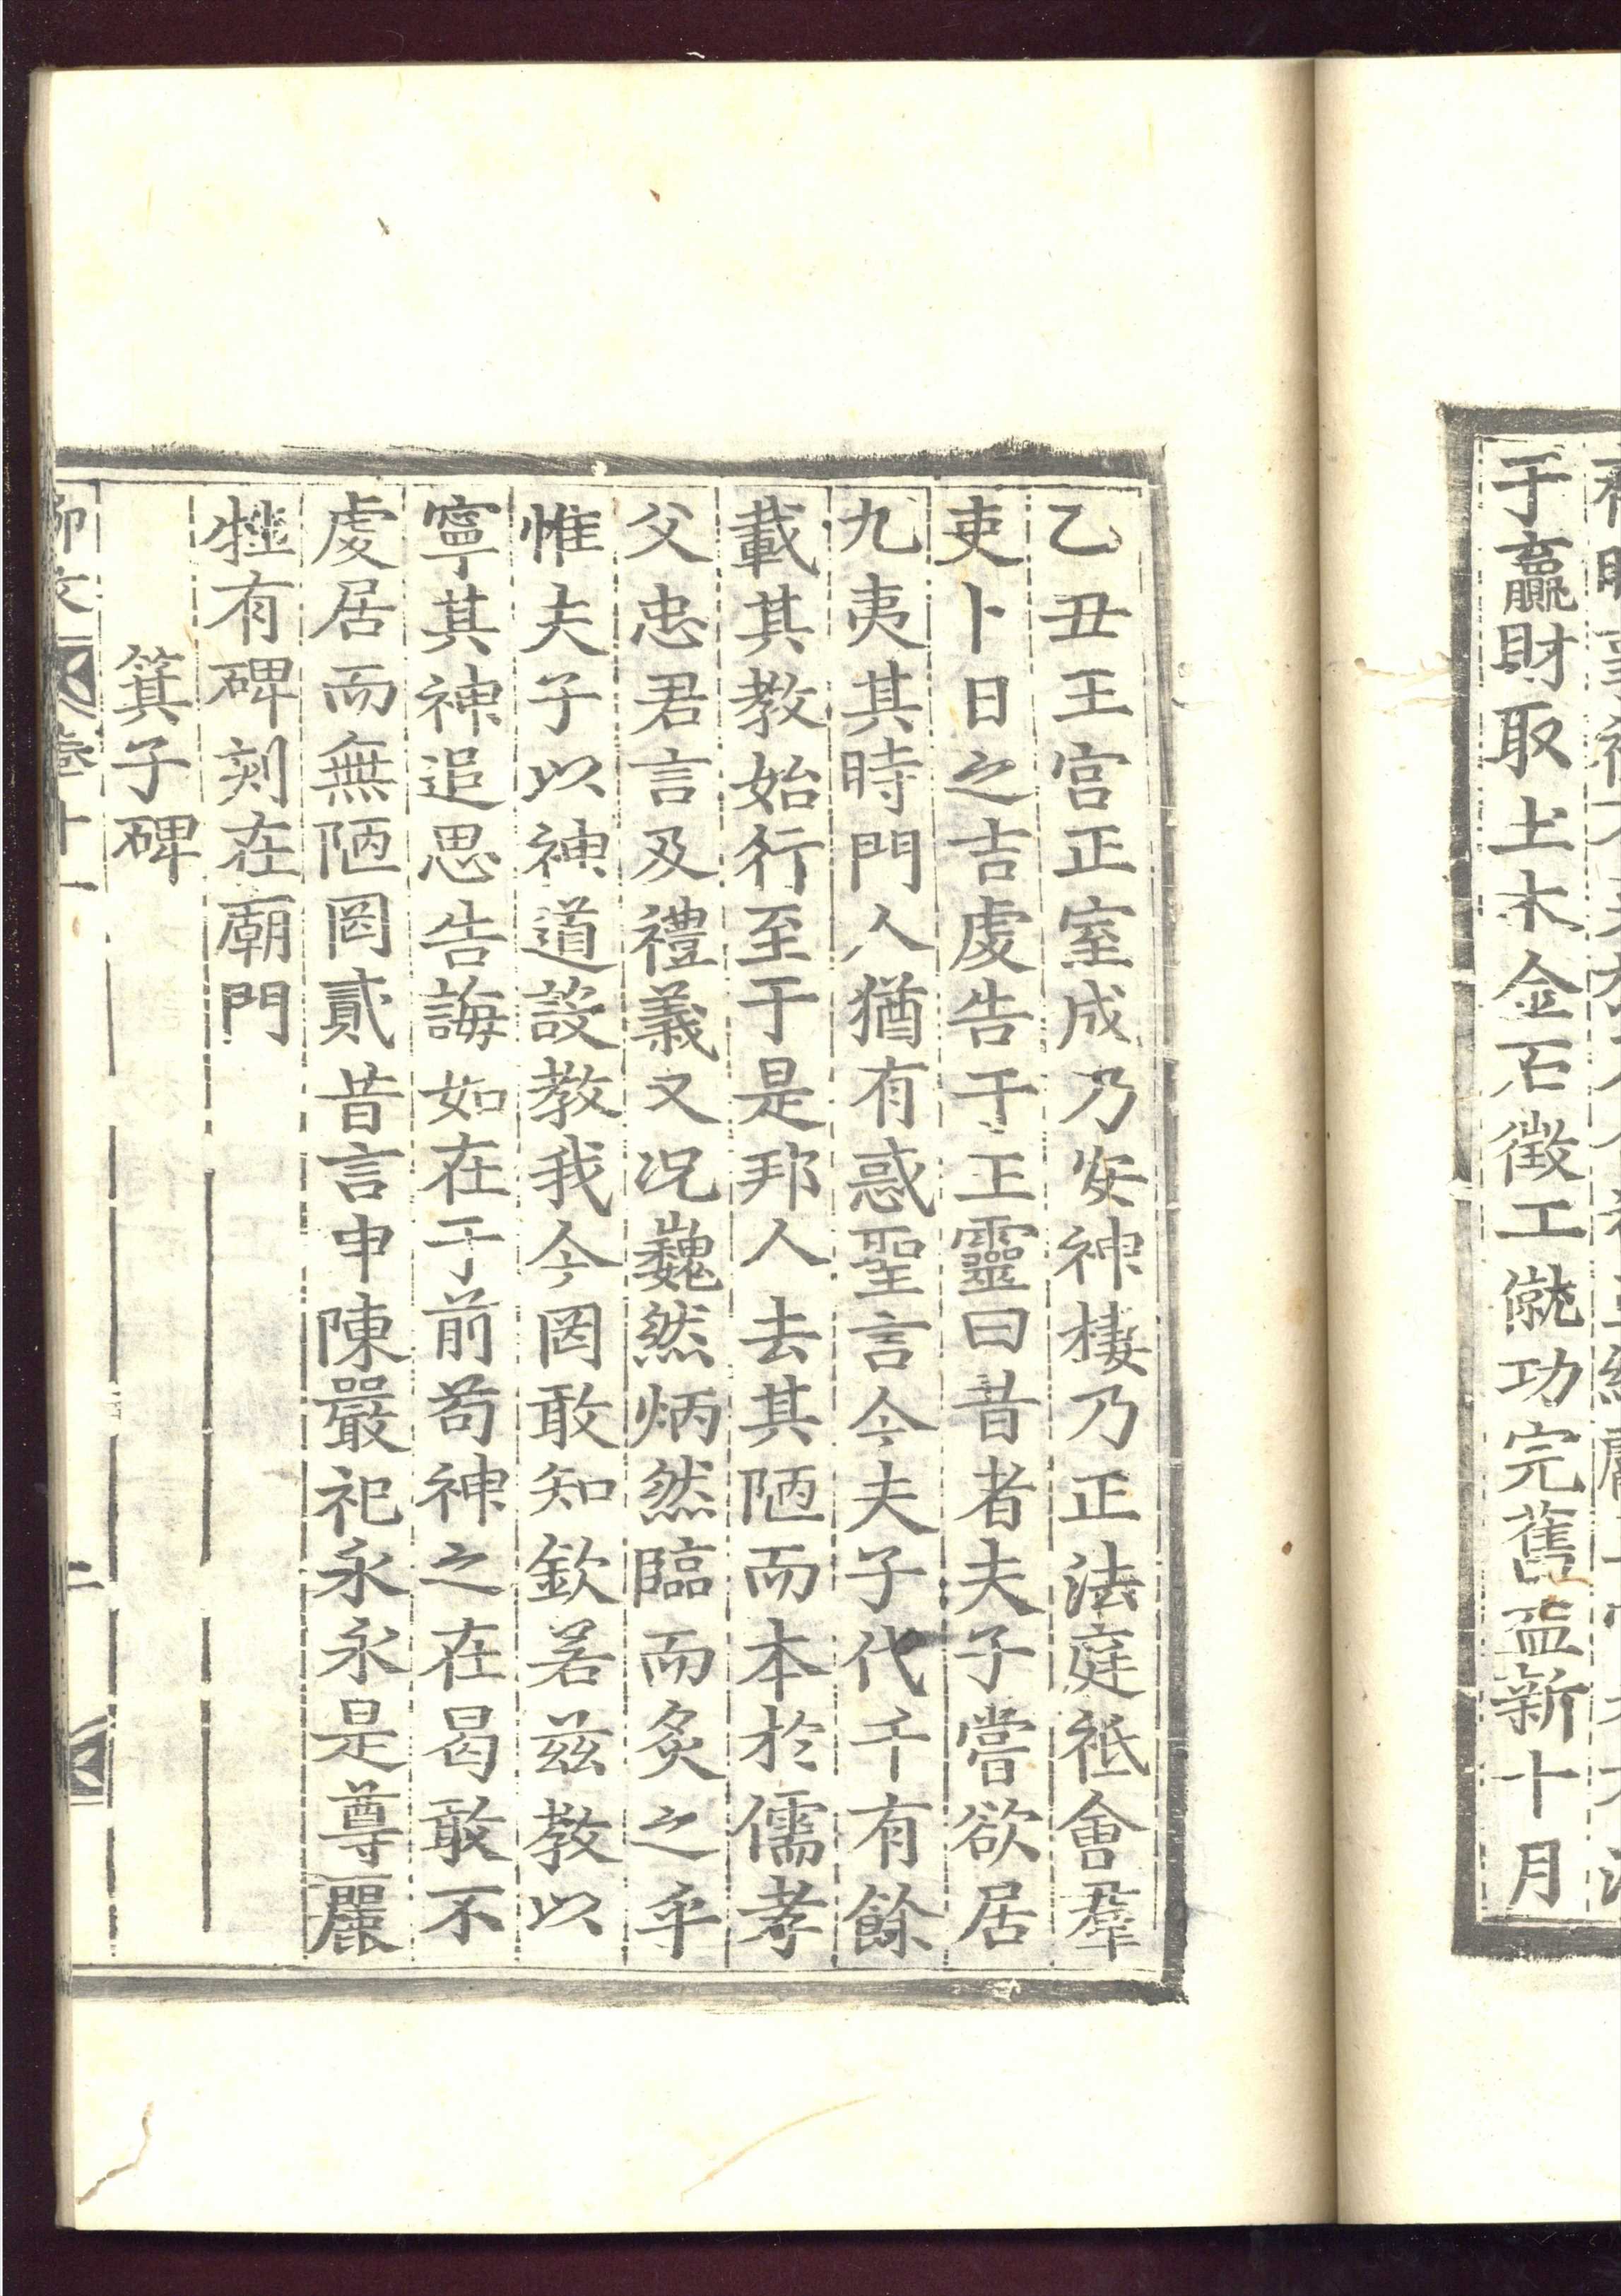 于贏財取土木金石徵工僦功完舊益新十月
乙丑王宮正室成乃安神棲乃正法庭祗會羣
吏卜日之吉虔告于王靈曰昔者夫子嘗欲居
九夷其時門人猶有惑聖言今夫子代千有餘
載其教始行至于是邦人去其陋而本於儒孝
父忠君言及禮義又况巍然炳然臨而炙之乎
惟夫子以神道設教我今罔敢知欽若茲教以
寧其神追思告誨如在于前苟神之在曷敢不
虔居而無陋罔貳昔言申陳嚴祀永永是尊麗
牲有碑刻在廟門
箕子碑